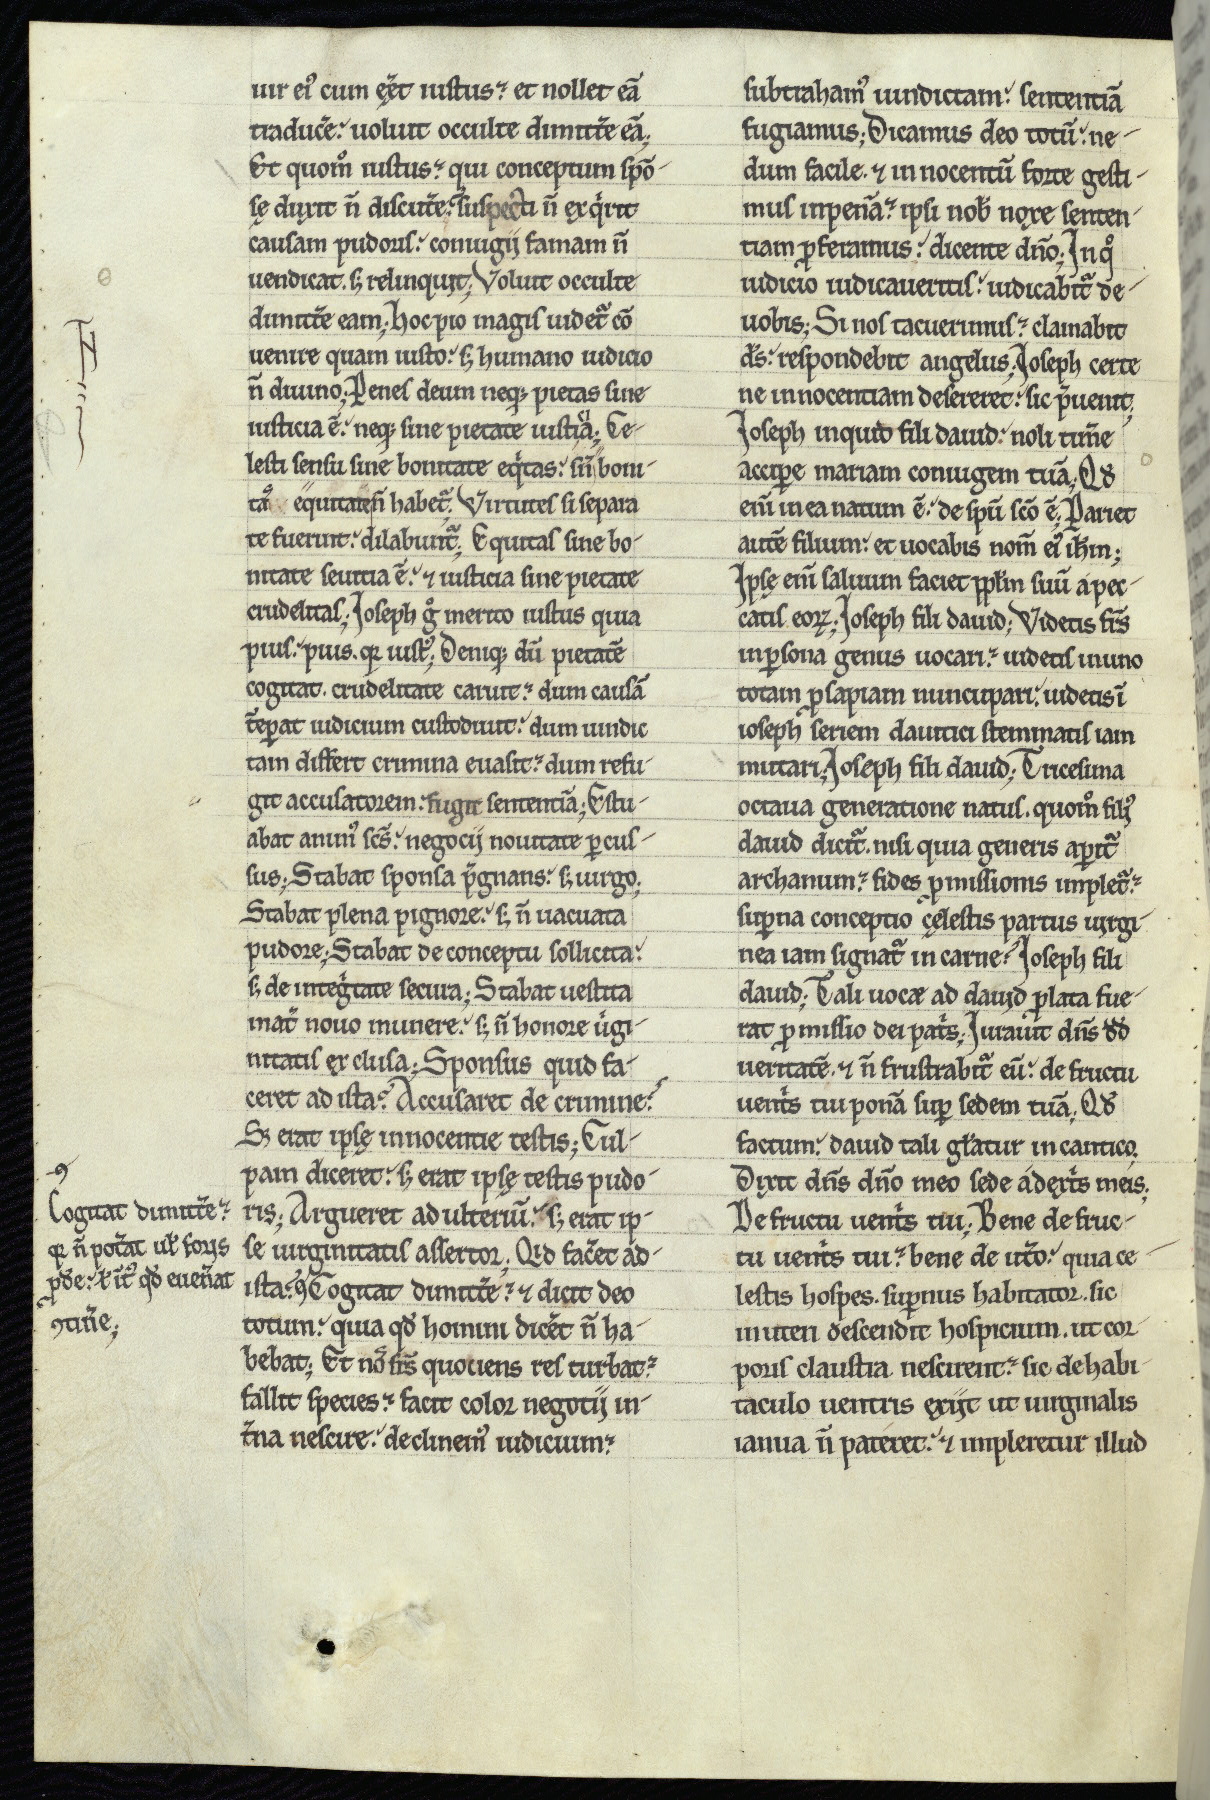 uir ei᷒ cum eẽt iustus? et nollet eã
traduc̃e. uoluit occulte dimitt̃e eã;
Et quom̊ iustus? qui conceptum spõ-
sę duxit ñ discut̃e. suspecti ñ exq̃rit
causam pudoris. coniugij famam ñ
uendicat. sꝫ relinquit; Voluit occulte
dimitt̃e eam; Hoc pio magis uidet̃ cõ
uenire quam iusto. sꝫ humano iudicio
ñ diuino; Penes deum neqꝫ pietas sine
iusticia ẽ. neqꝫ sine pietate iustiᷓa; Ce-
lesti sensu sine bonitate eq̃tas. sñ boni-
tå equitate ñ habet̃. Virtutes si separa
te fuerint. dilabunt̃; Equitas sine bo-
nitate seuitia ẽ. ⁊ iusticia sine pietate
crudelitas; Joseph g̊ merito iustus quia
pius. pius. qꝛ iust᷒; Deniqꝫ dũ pietatẽ
cogitat. crudelitate caruit? dum causã
tẽꝑat iudicium custodiuit. dum uindic
tam differt crimina euasit? dum refu-
git accusatorem. fugit sententiã; Estu-
abat anim᷒ scs̃. negocij nouitate ꝑcus-
sus; Stabat sponsa p̃gnans. sꝫ uirgo;
Stabat plena pignore. sꝫ ñ uacuata
pudore; Stabat de conceptu sollicita.
sꝫ de integ̃tate secura; Stabat uestita
mat̃ nouo munere. sꝫ ñ honore ũgi-
nitatis exclusa; Sponsus quid fa-
ceret ad ista? Accusaret de crimine?
Sꝫ erat ipsę innocentie testis; Cul-
pam diceret. sꝫ erat ipsę testis pudo-
ris; Argueret adulteriũ. sꝫ erat ip-
se uirginitatis assertor. Qid fac̃et ad-
ista? ꝯCogitat dimitt̃e? ⁊ dicit deo
totum. quia qđ homini dic̃et ñ ha-
bebat; Et nõ frs̃ quociens res turbat?
fallit species? facit color negotij in-
t̃na nescire. declinem᷒ iudicium?
ꝯ
Cogitat dimitt̃e?
qꝛ ñ pot̃at ul̃ foris
ꝓđe. ł it᷒ qđ euen̄at
ꝯtin̄e;
subtraham᷒ uindictam. sententiã
fugiamus; Dicamus deo totũ. ne-
dum facile. ⁊ in nocentũ forte gesti-
mus inpenã? ipsi nob̃ noxe senten-
tiam ꝓferamus. dicente dño; In q̊
iudicio iudicaueritis. iudicabit̃ de-
uobis; Si nos tacuerimus? clamabit
ds̃. respondebit angelus; Joseph certe
ne innocentiam desereret. sic p̃uenit;
Joseph inquid fili dauid. noli tim̃e
accipe mariam coniugem tuã; Qđ
eni᷒ in ea natum ẽ. de spũ scõ ẽ; Pariet
autẽ filium. et uocabis nom̃ ei᷒ ihm̃;
Ipsę eni᷒ saluum faciet ppl̃m suũ a pec-
catis eoꝝ; Joseph fili dauid; Videtis frs̃
inꝑsona genus uocari? uidetis inuno
totam ꝓsapiam nuncupari. uidetis ĩ
ioseph seriem dauitici stemmatis iam
mutari; Joseph fili dauid; Tricesima
octaua generatione natus. quom̊ fili᷒
dauid dicit̃. nisi quia generis aꝑit̃
archanum? fides ꝓmissionis implet̃?
suꝑna conceptio cęlestis partus uirgi-
nea iam signat̃ in carne? Joseph fili
dauid; Tali uocæ ad dauid ꝓlata fue-
rat ꝓmissio dei patis̃; Jurauit dñs đđ
ueritatẽ. ⁊ ñ frustrabit̃ eũ. de fructu
uentis̃ tui ponã suꝑ sedem tuã; Qđ
factum. dauid tali gl̃atur in cantico.
Dixit dñs dño meo sede a dextis̃ meis;
De fructu uentis̃ tui; Bene de fruc-
tu uentis̃ tui? bene de ut̃o. quia ce-
lestis hospes. suꝑnus habitator. sic
in uteri descendit hospicium. ut cor-
poris claustra nescirent? sic de habi-
taculo uentris exijt ut uirginalis
ianua ñ pateret. ⁊ impleretur illud